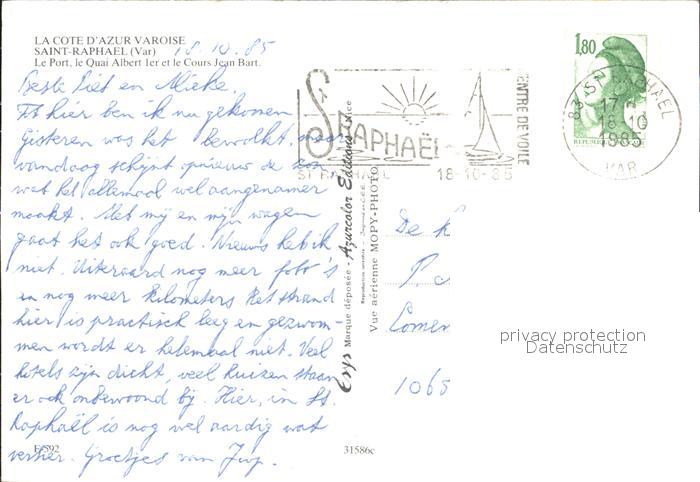 LA COTE D'AZUR VAROISE
SAINT-RAPHAEL (Var) 18.10.85
Le Port, le Quai Albert 1er et le Cours Jean Bart.
Beste Piet en Nieke.
Tot hier ben ik nu gekomen
Gisteren was het bewolkt, maar
vandaag schijnt opnieuw de zon
wat het allemaal wel aangenamer
maakt. Met mij en mijn wagen
gaat het ook goed. Nieuws heb ik
niet. Uiteraard nog meer foto's
en nog meer kilometers Het strand
hier is practisch leeg en gezwom-
men wordt er helemaal niet. Veel
hotels zijn dicht, veel huizen staan
er ook onbewoond bij. Hier, in St.
Raphaël is nog wel aardig wat
vertier. Groetjes van Jup.
E/592
31586c
Erys Marque déposée - Azurcolor Editions
Vue aérienne MOPY-PHOTO
St RAPHAËL
CENTRE DE VOILE
ST RAPHAEL 18-10-85
1,80
83 ST RAPHAEL
17 H
18-10
1985
VAR
De k
P. c
Lomen
1065
privacy protection
Datenschutz